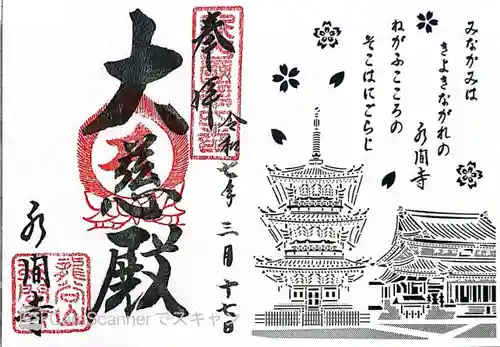 みなかみは
きよきながれの
水間寺
ねがふこころの
そこはにごらじ
奉拝
令和七年三月十七日
大慈殿
水間寺
龍谷山
CamScanner でスキャン